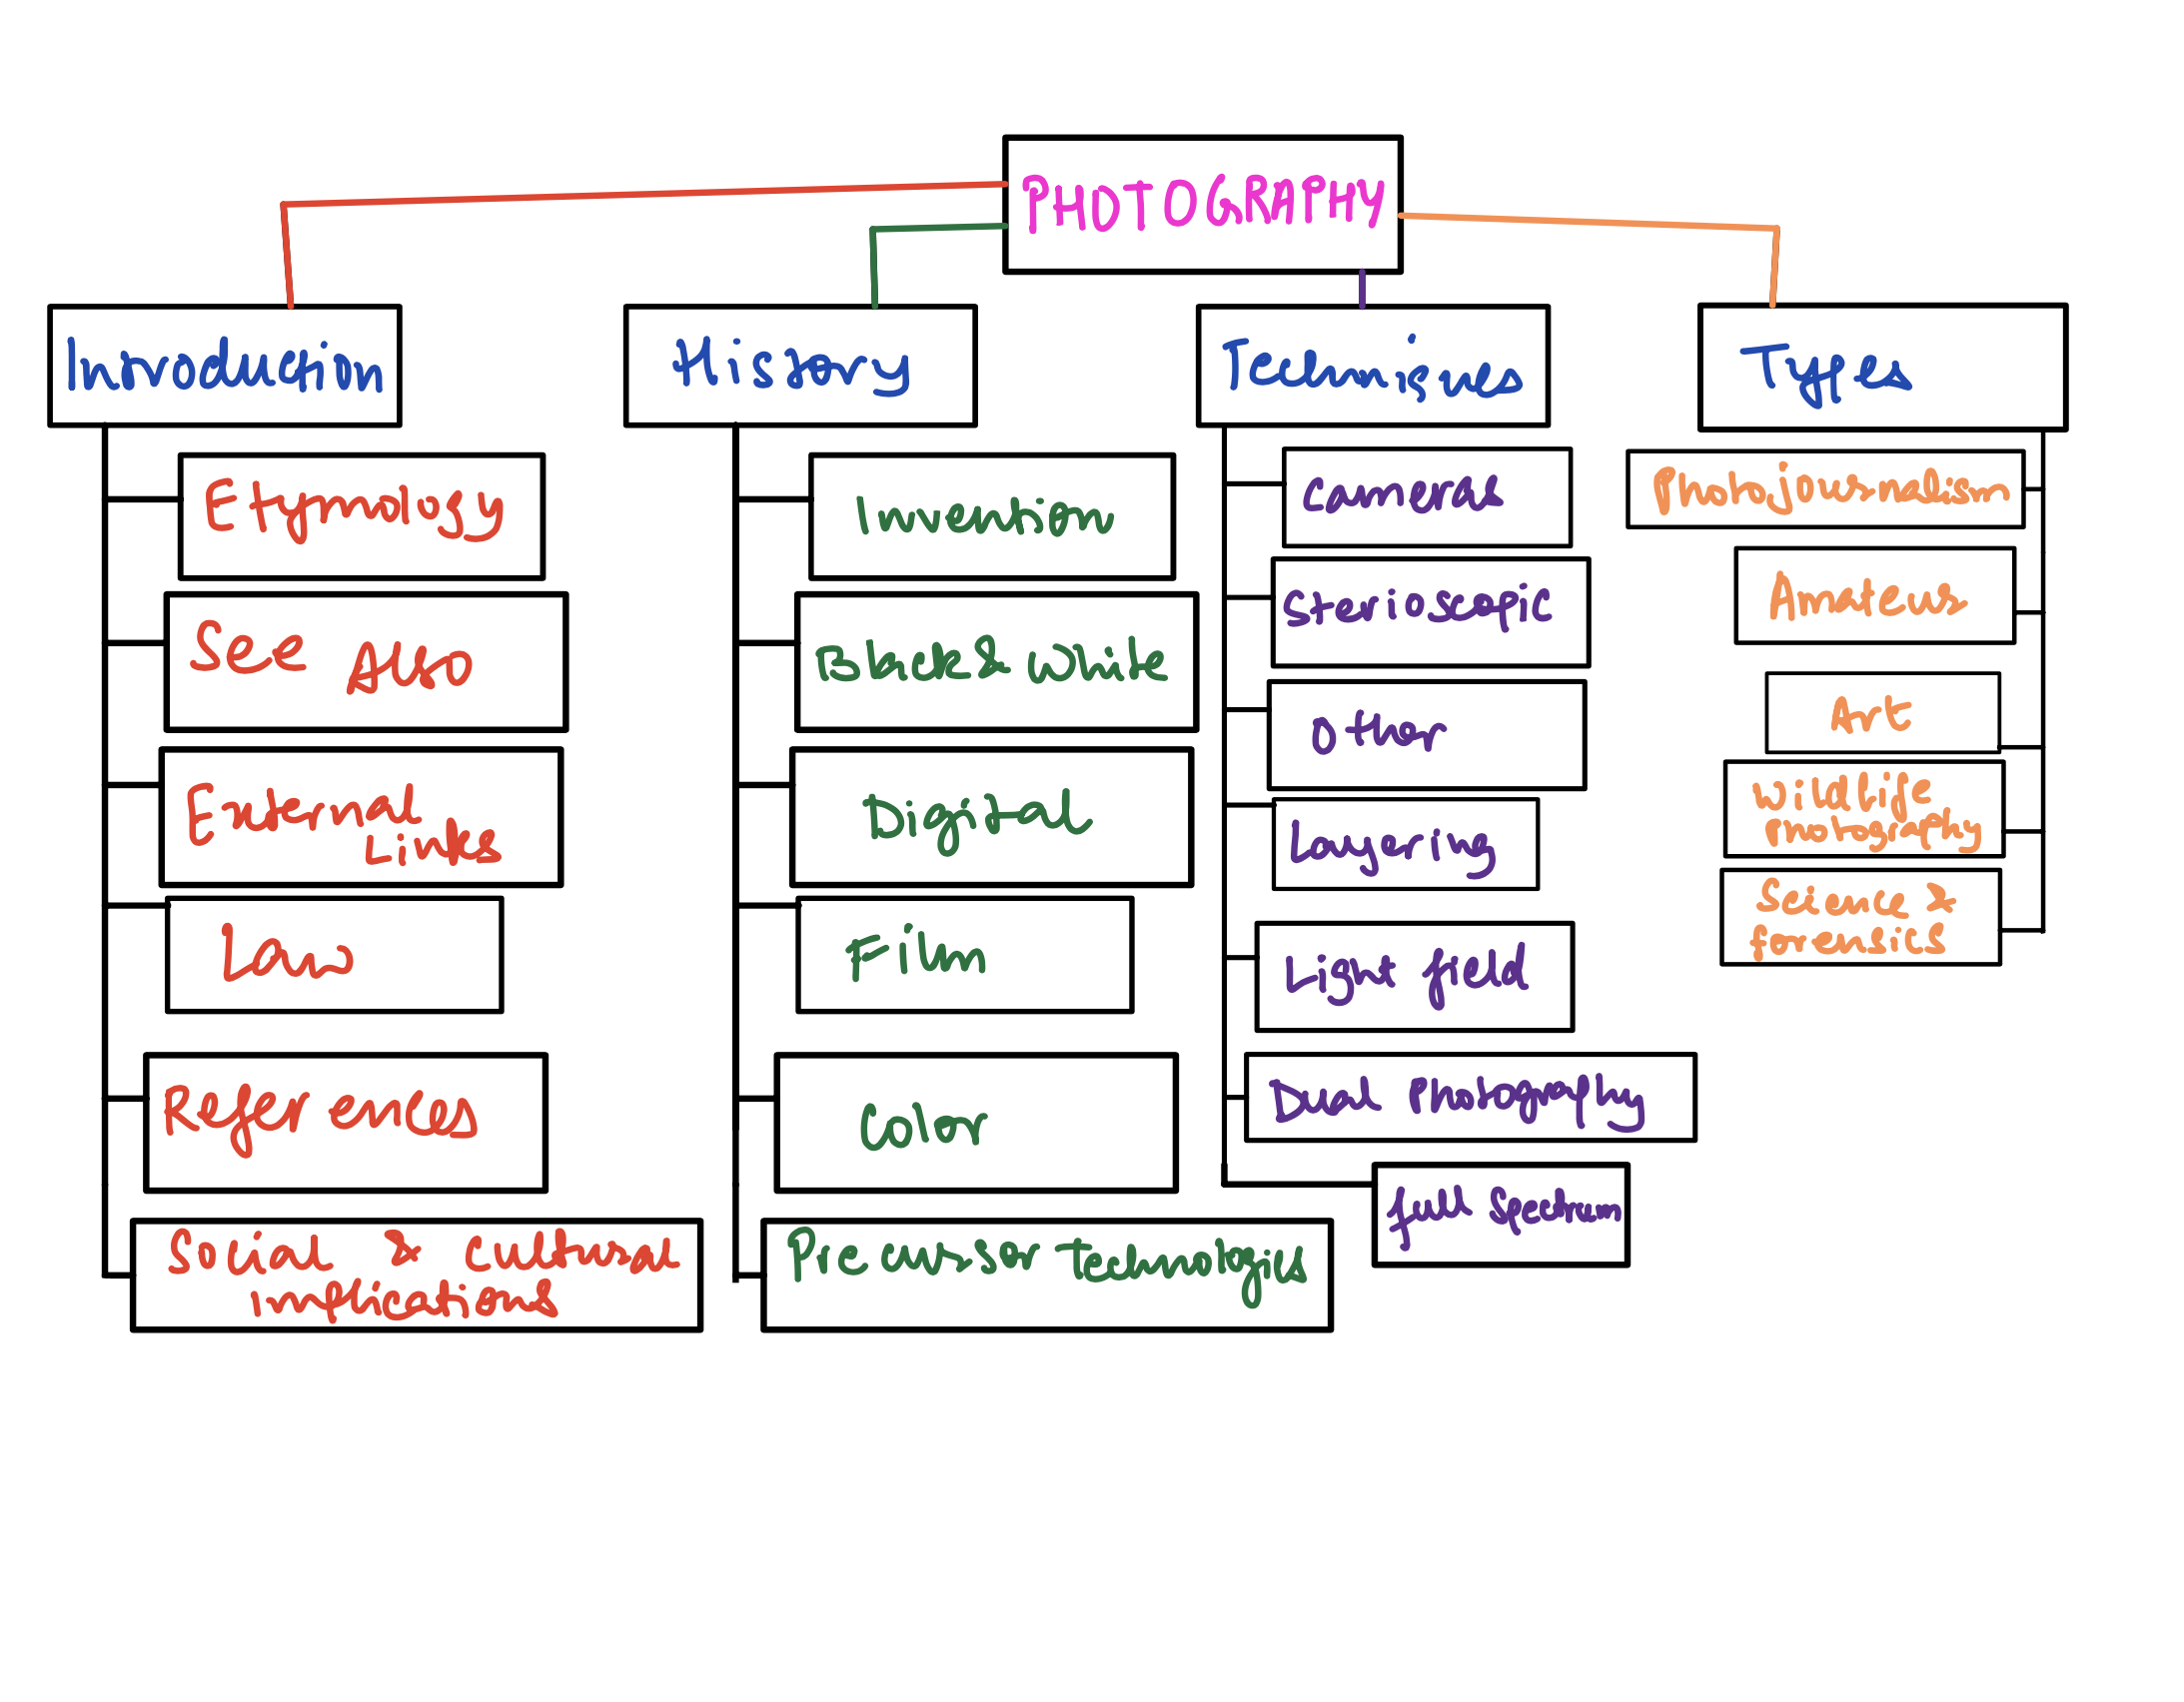 PHOTOGRAPHY
Introduction
History
Techniques
Types
Etymology
See Also
External
Links
Law
References
Social & Cultural
implications
Invention
Black & White
Digital
Film
Color
Precursor Technologies
Cameras
Sterioscopic
Other
Layering
Light field
Dual Photography
full Spectrum
Photojournalism
Amateur
Art
Wildlife
Photography
Science &
forensics